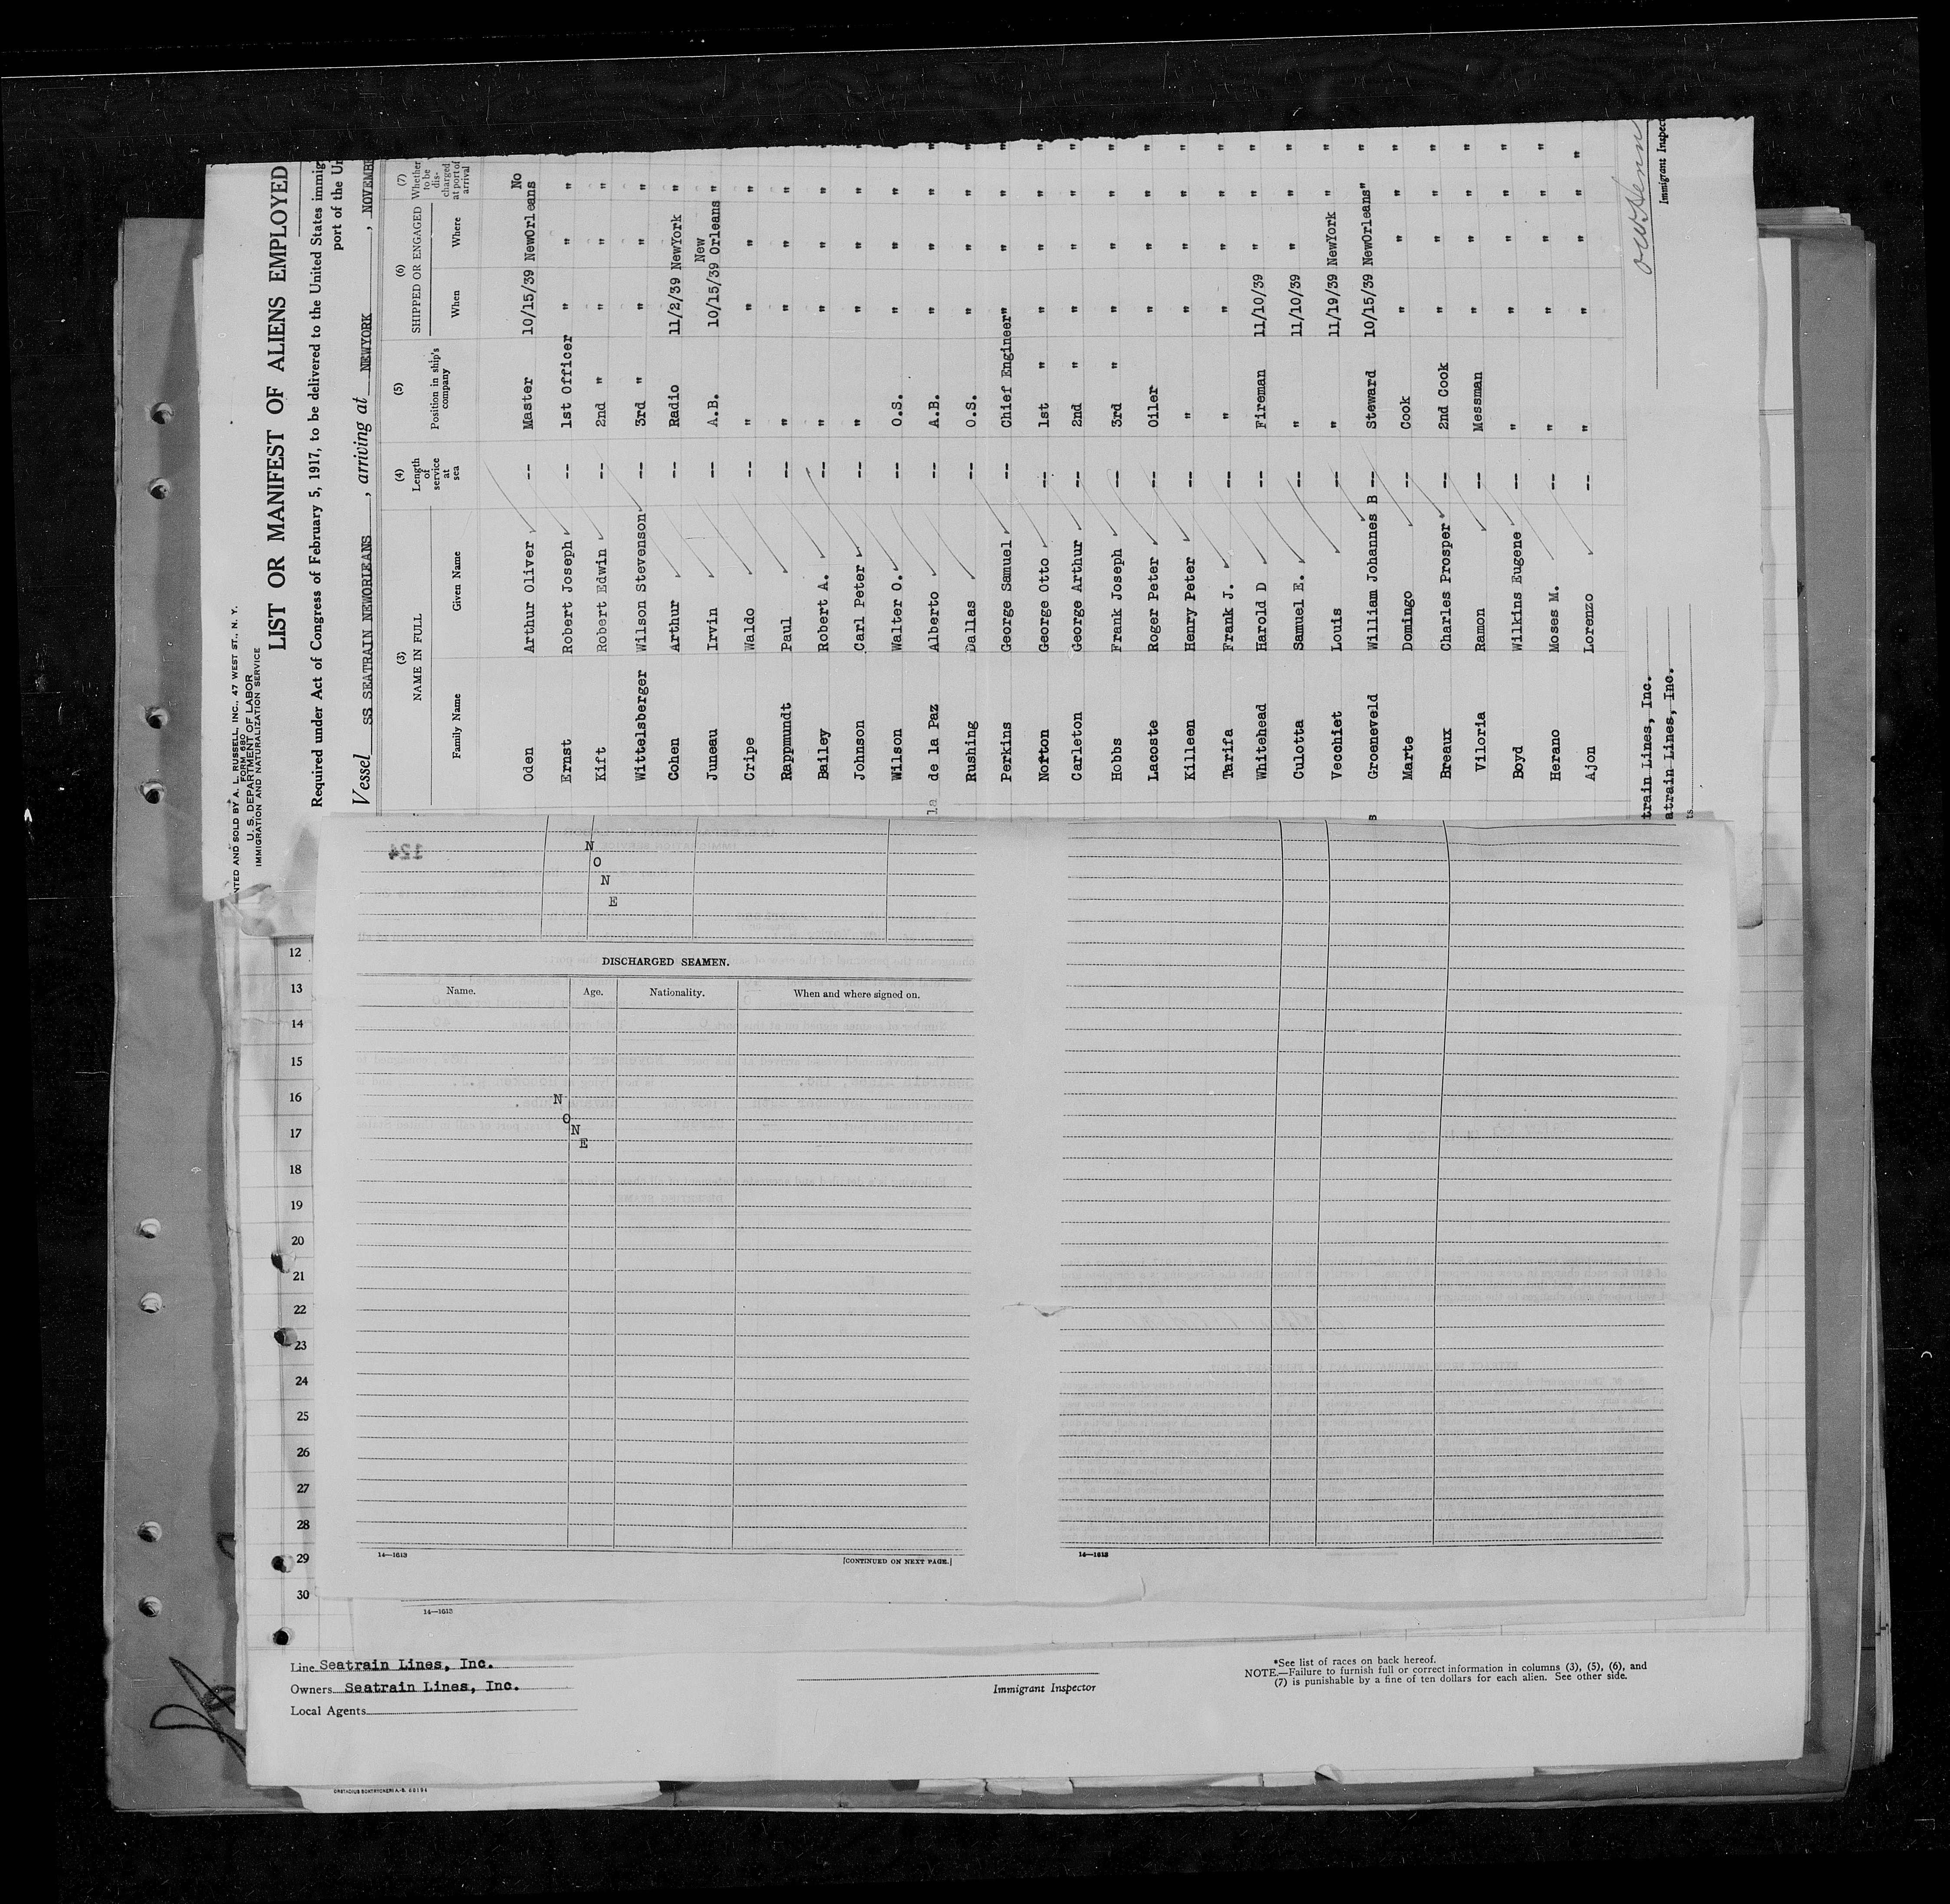 NTED AND SOLD BY A. L. RUSSELL, INC., 47 WEST ST., N. Y.
FORM 680
U. S. DEPARTMENT OF LABOR
IMMIGRATION AND NATURALIZATION SERVICE
LIST OR MANIFEST OF ALIENS EMPLOYED
Required under Act of Congress of February 5, 1917, to be delivered to the United States immig
port of the Un
Vessel SS SEATRAIN NEWORLEANS, arriving at NEWYORK, NOVEMBE
(3) NAME IN FULL (4) Length of service at sea (5) Position in ship's company (6) SHIPPED OR ENGAGED (7) Whether to be dis- charged at port of arrival
Family Name Given Name When Where
Oden Arthur Oliver -- Master 10/15/39 NewOrleans No
Ernst Robert Joseph -- 1st Officer " " "
Kift Robert Edwin -- 2nd " " " "
Wittelsberger Wilson Stevenson -- 3rd " " " "
Cohen Arthur -- Radio 11/2/39 NewYork "
Juneau Irvin -- A.B. 10/15/39 New Orleans "
Cripe Waldo -- " " " "
Rappmundt Paul -- " " " "
Bailey Robert A. -- " " " " "
Johnson Carl Peter -- " " " " "
Wilson Walter O. -- O.S. " " " "
la de la Paz Alberto -- A.B. " " " "
Rushing Dallas -- O.S. " " " "
Perkins George Samuel -- Chief Engineer " " " "
Norton George Otto -- 1st " " " " "
Carleton George Arthur -- 2nd " " " " "
Hobbs Frank Joseph -- 3rd " " " " "
Lacoste Roger Peter -- Oiler " " " "
Killeen Henry Peter -- " " " " "
Tarifa Frank J. -- " " " " "
Whitehead Harold D -- Fireman 11/10/39 " " "
Culotta Samuel E. -- " 11/10/39 " " "
Vecchiet Louis -- " 11/19/39 NewYork " "
s Groeneveld William Johannes B -- Steward 10/15/39 NewOrleans " "
Marte Domingo -- Cook " " " "
Breaux Charles Prosper -- 2nd Cook " " " "
Viloria Ramon -- Messman " " " "
Boyd Wilkins Eugene -- " " " " "
Herano Moses M. -- " " " " "
Ajon Lorenzo -- " " " " "
train Lines, Inc.
atrain Lines, Inc.
ts
Immigrant Inspec
124
N
O
N
E
DISCHARGED SEAMEN.
Name. Age. Nationality. When and where signed on.
N
O
N
E
12
13
14
15
16
17
18
19
20
21
22
23
24
25
26
27
28
29
30
14—1613 [CONTINUED ON NEXT PAGE.] 14—1613
14—1613
Line Seatrain Lines, Inc.
Owners Seatrain Lines, Inc.
Local Agents
Immigrant Inspector
*See list of races on back hereof.
NOTE.—Failure to furnish full or correct information in columns (3), (5), (6), and
(7) is punishable by a fine of ten dollars for each alien. See other side.